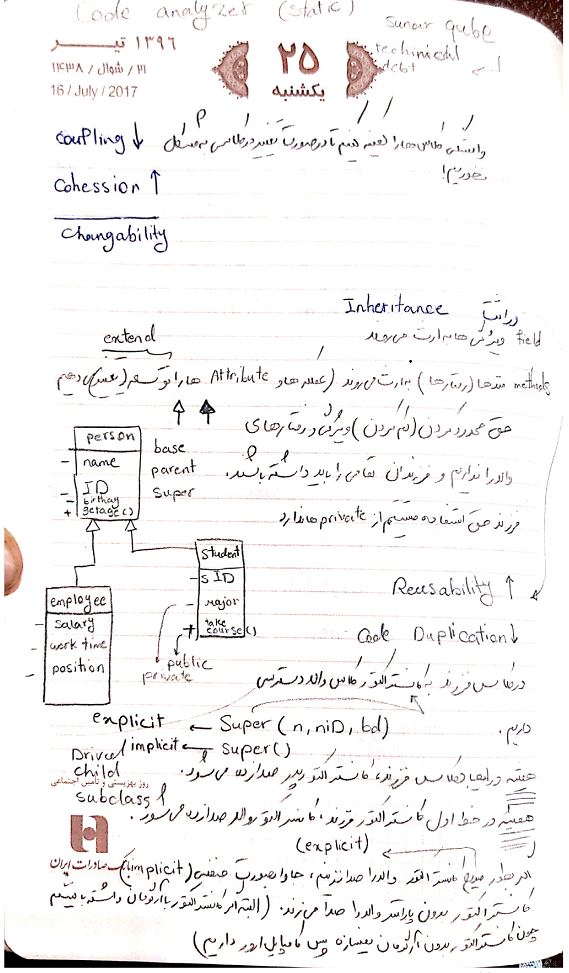 Code analyzer (static)
Sunar qube
techinical
debt
۱۳۹۶ تیر
۲۱ / شوال / ۱۴۳۸
16 / July / 2017
۲۵
یکشنبه
Coupling ↓
وابستگی کلاس ها را کمینه کنیم تا در صورت تغییر در کلاسی به مشکل
نخوریم!
Cohession ↑
Changability
Inheritance وراثت
field ویژگی ها به ارث می روند
extend
methods متدها (رفتارها) به ارث می روند (عمله ها و Attribute ها را توسعه (تغییر) می دهیم
حق محدود کردن (کم کردن) ویژگی و رفتارهای
والد را نداریم و فرزندان تمامی را باید داشته باشند.
فرزند حق استفاده مستقیم از private ها ندارد
person
- name
- ID
- birthday
+ getage()
base
parent
super
student
- SID
- Major
+ take course()
employee
- salary
- work time
- position
public
private
Reusability ↑
Code Duplication ↓
در کلاس فرزند به کانستراکتور کلاس والد دسترسی
داریم.
explicit ← Super (n, niD, bd)
implicit ← super()
Drived
child
subclass
روز بهزیستی و تامین اجتماعی
همیشه در ابتدا کلاس فرزند، کانستراکتور پدر صدا زده می شود.
همیشه در خط اول کانستراکتور فرزند، کانستراکتور والد صدا زده می شود.
(explicit)
بانک صادرات ایران
اگر بطور صریح کانستراکتور والد را صدا نزنیم، جاوا بصورت ضمنی (implicit)
کانستراکتور بدون پارامتر والد را صدا می زند. (البته اگر کانستراکتور با آرگومان داشته باشیم
چون کانستراکتور بدون آرگومان نمیسازه پس کامپایل ارور داریم)